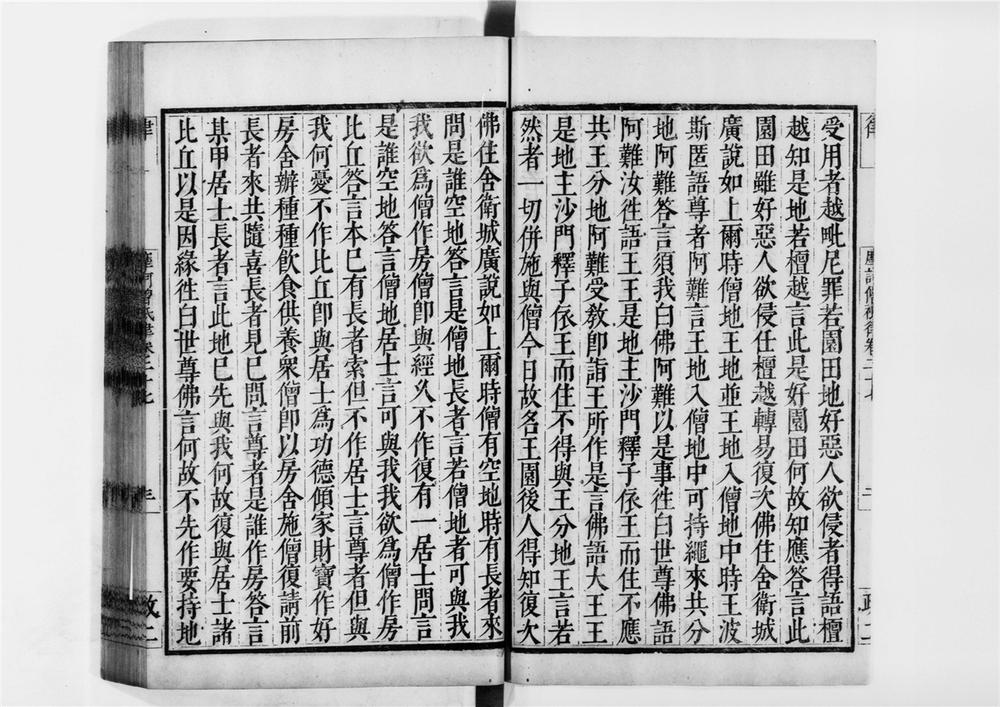 受用者越毗尼罪若園田地好惡人欲侵者得語檀
越知是地若檀越言此是好園田何故知應答言此
園田雖好惡人欲侵仕檀越轉易復次佛住舍衛城
廣說如上爾時僧地王地並王地入僧地中時王波
斯匿語尊者阿難言王地入僧地中可持繩來共分
地阿難答言須我白佛阿難以是事徃白世尊佛語
阿難汝徃語王王是地主沙門釋子依王而住不應
共王分地阿難受敎卽詣王所作是言佛語大王王
是地主沙門釋子依王而住不得與王分地王言若
然者一切併施與僧今日故名王園後人得知復次
佛住舍衛城廣說如上爾時僧有空地時有長者來
問是誰空地答言是僧地長者言若僧地者可與我
我欲爲僧作房僧卽與經久不作復有一居士問言
是誰空地答言僧地居士言可與我我欲爲僧作房
比丘答言本已有長者索但不作居士言尊者但與
我何憂不作比丘卽與居士爲功德傾家財寶作好
房舍辦種種飲食供養衆僧卽以房舍施僧復請前
長者來共隨喜長者見已問言尊者是誰作房答言
某甲居士長者言此地已先與我何故復與居士諸
比丘以是因緣徃白世尊佛言何故不先作要持地
律
摩訶僧祇律卷二十七